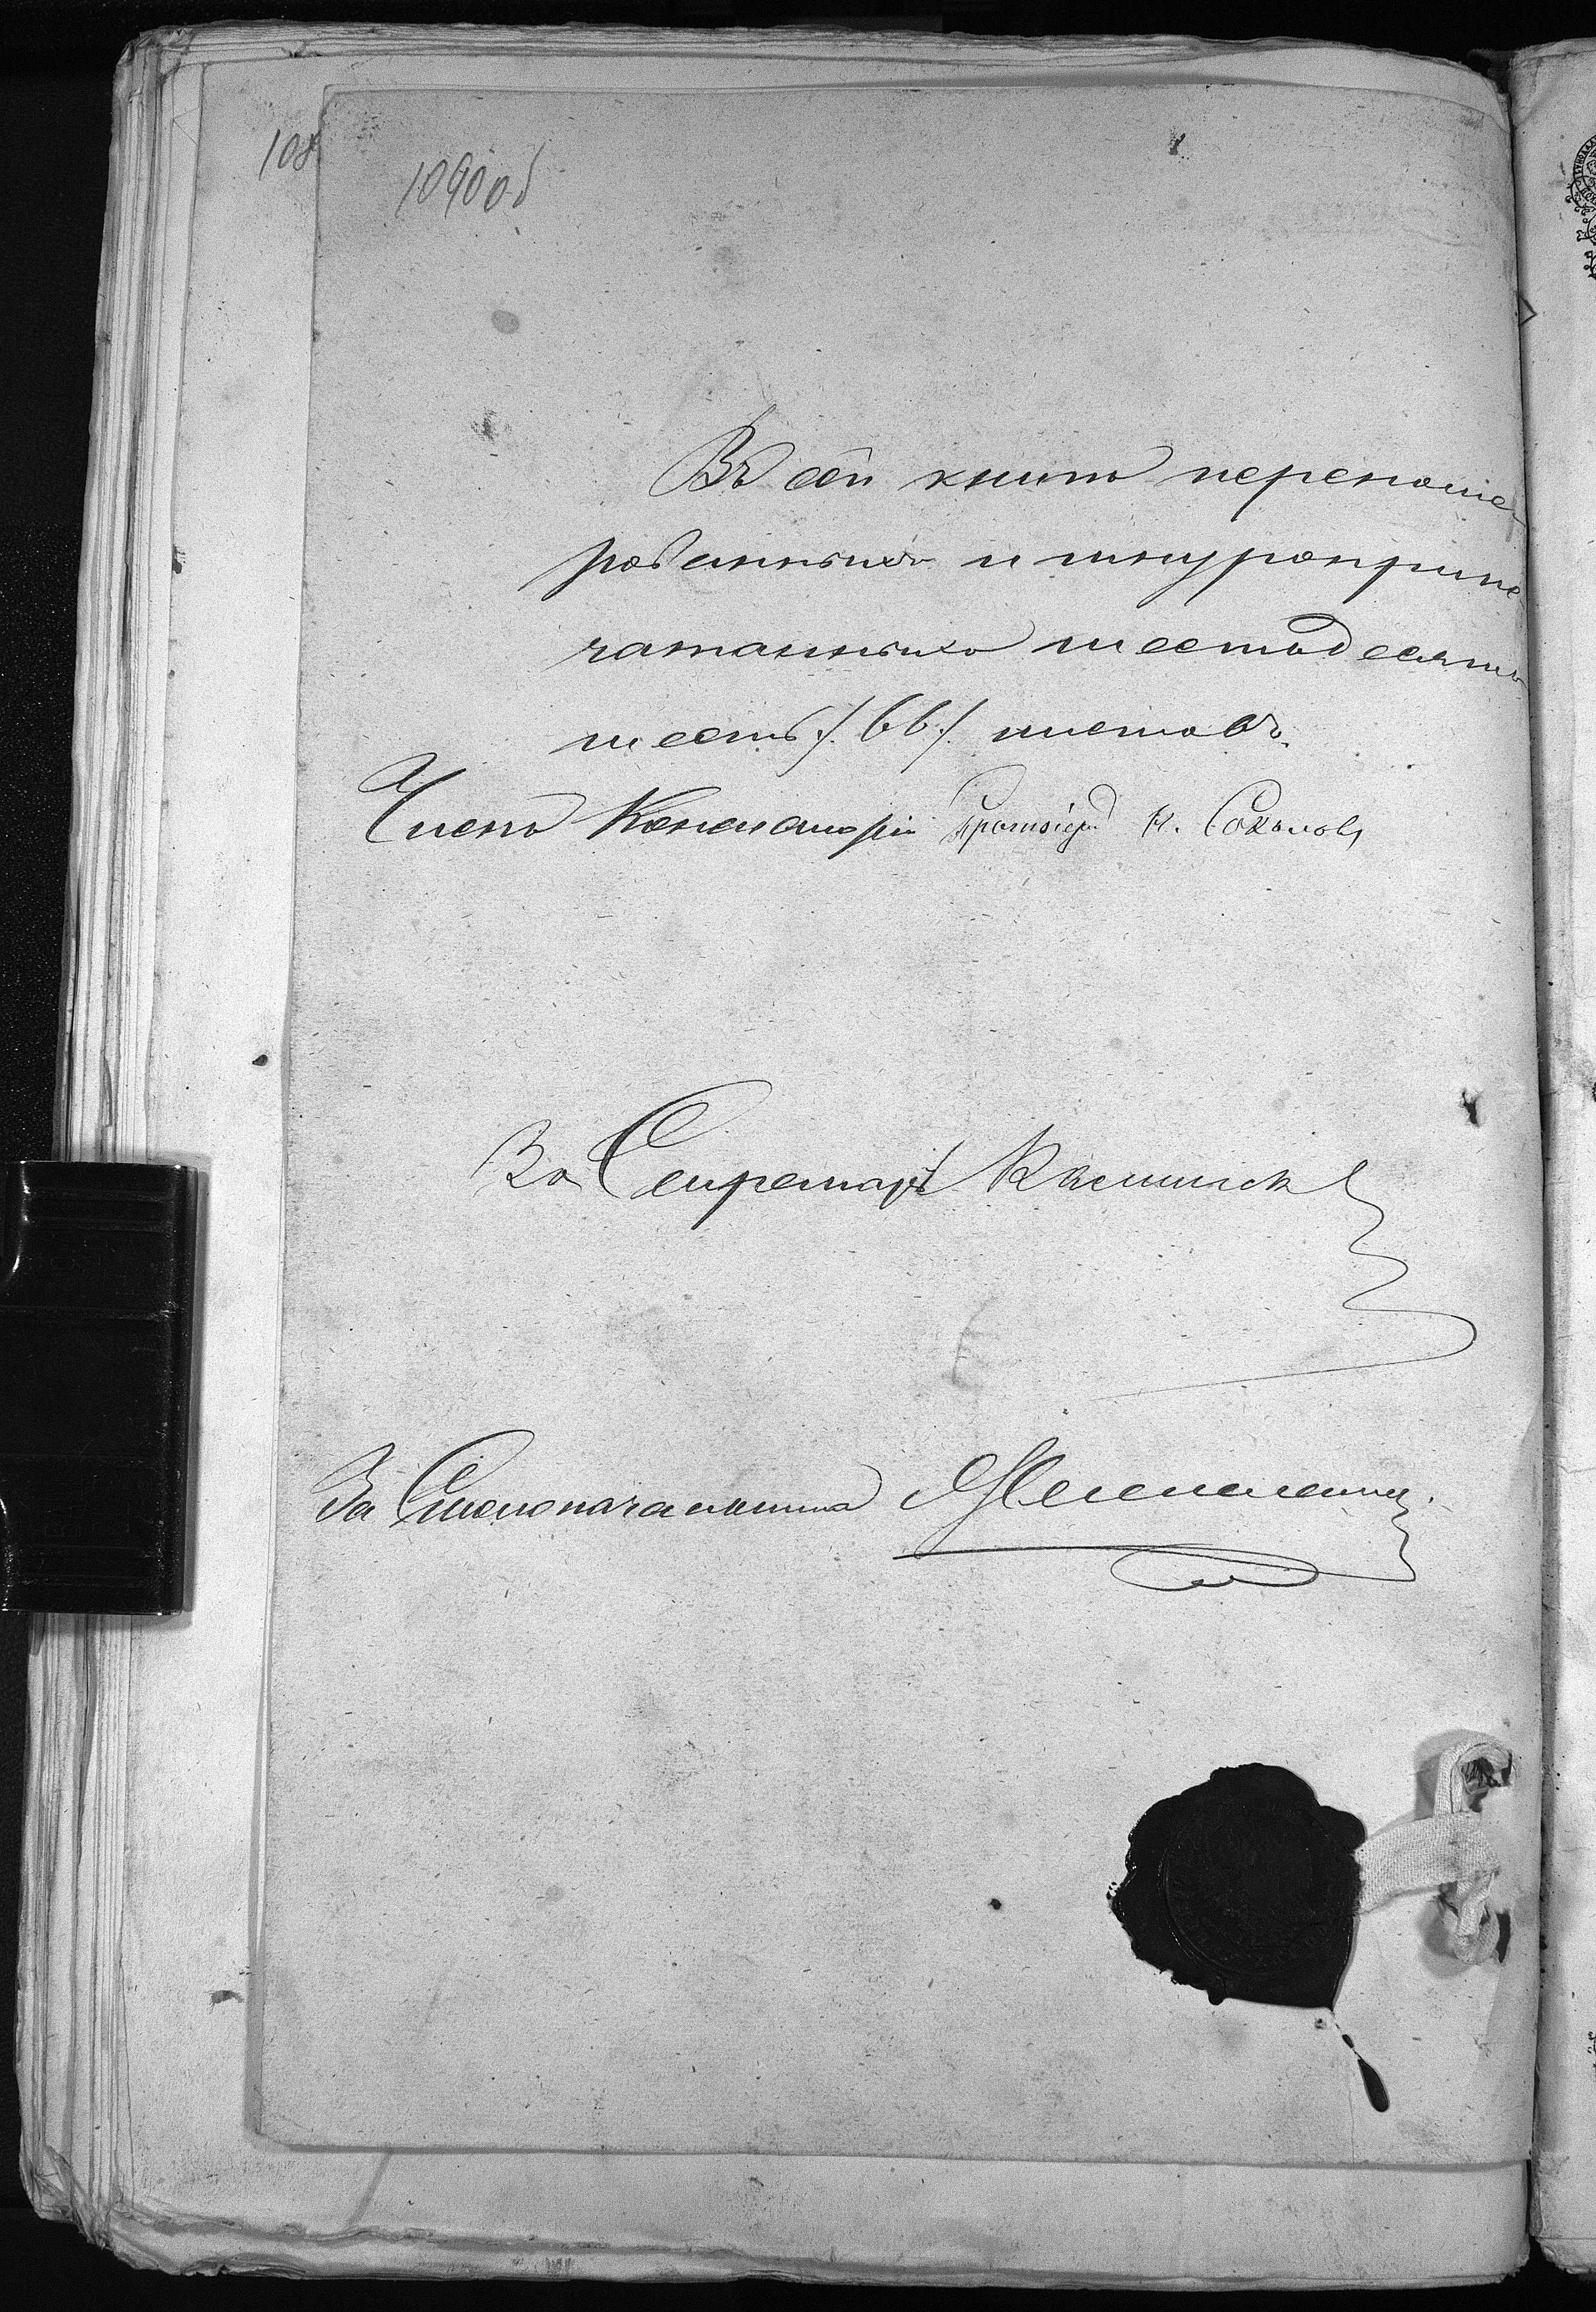 108
109 об
Въ сей книгѣ перенуме
рованныхъ и шнуроприпе
чатанныхъ шестьдесятъ
шесть /. 66 ./ листовъ.
Членъ Консисторіи Протоіерей Н. Соколовъ
За Секретаря
За Столоначальника